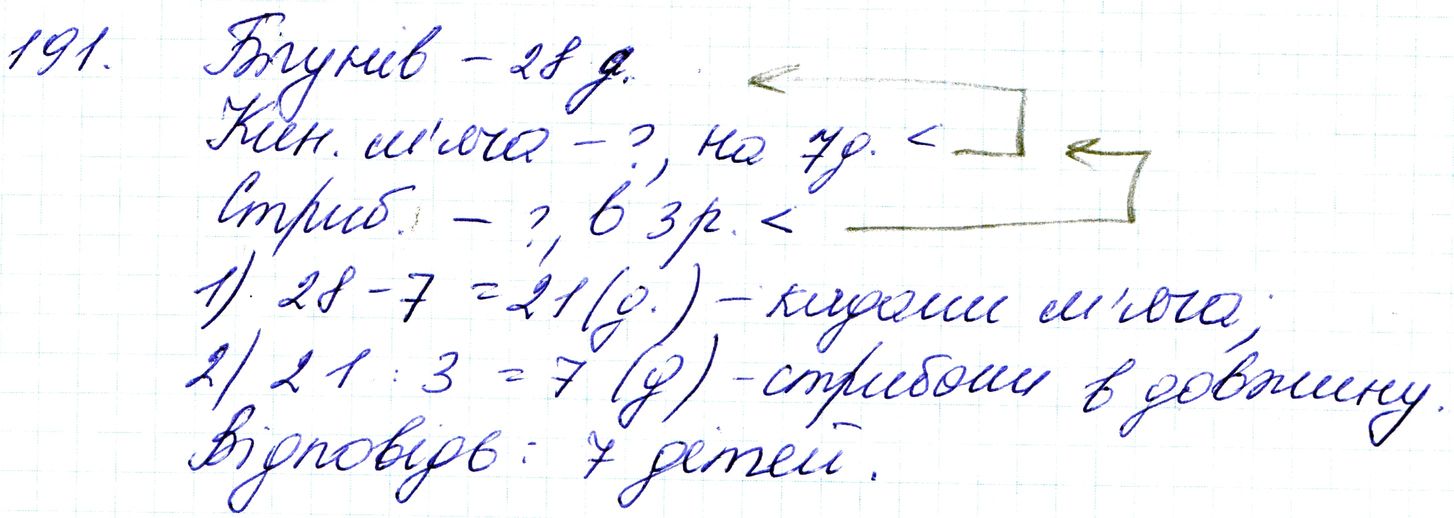 191. Бігунів – 28 д.
Кин. м'яча – ?, на 7д. <
Стриб. – ?, в 3 р. <
1) 28 – 7 = 21 (д.) – кидали м'яча;
2) 21 : 3 = 7 (д) – стрибали в довжину.
Відповідь: 7 дітей.